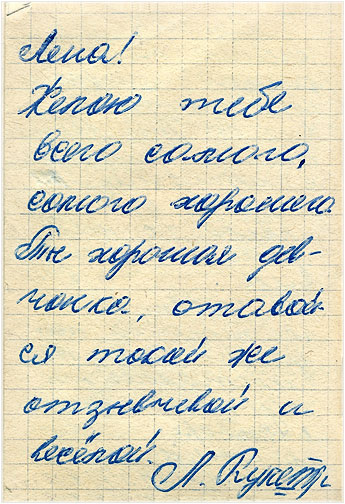 Лена!
Желаю тебе
всего самого,
самого хорошего
Ты хорошая дев-
чонка, отавай-
ся такой же
отзывчивой и
весёлой.
Л.